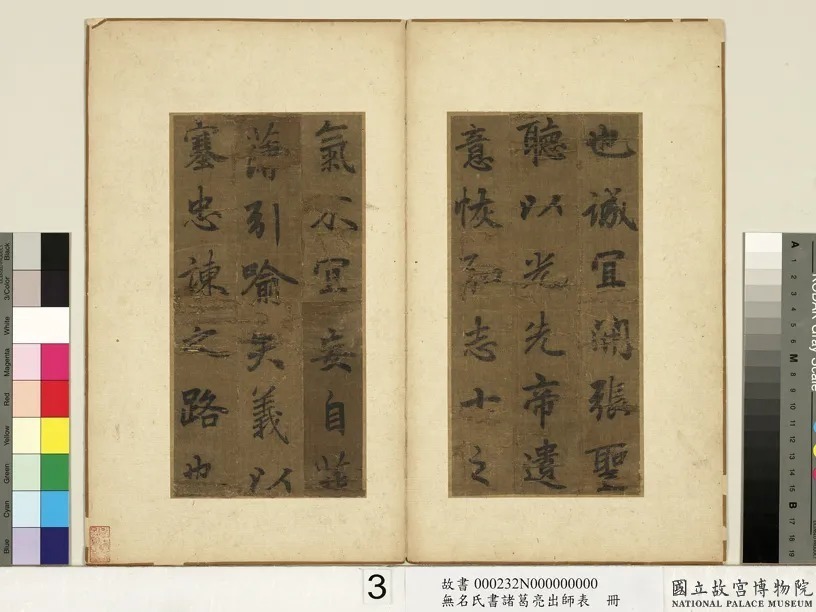 也誠宜開張聖
聽以光先帝遺
意恢弘志士之
氣不宜妄自菲
薄引喻失義以
塞忠諫之路也
3
故書 000232N000000000
無名氏書諸葛亮出師表 冊
國立故宮博物院
NATIONAL PALACE MUSEUM
Blue Cyan Green Yellow Red Magenta White 3/Color Black
Gray Scale
A 1 2 3 4 5 6 M 8 9 10 11 12 13 14 15 B 17 18 19